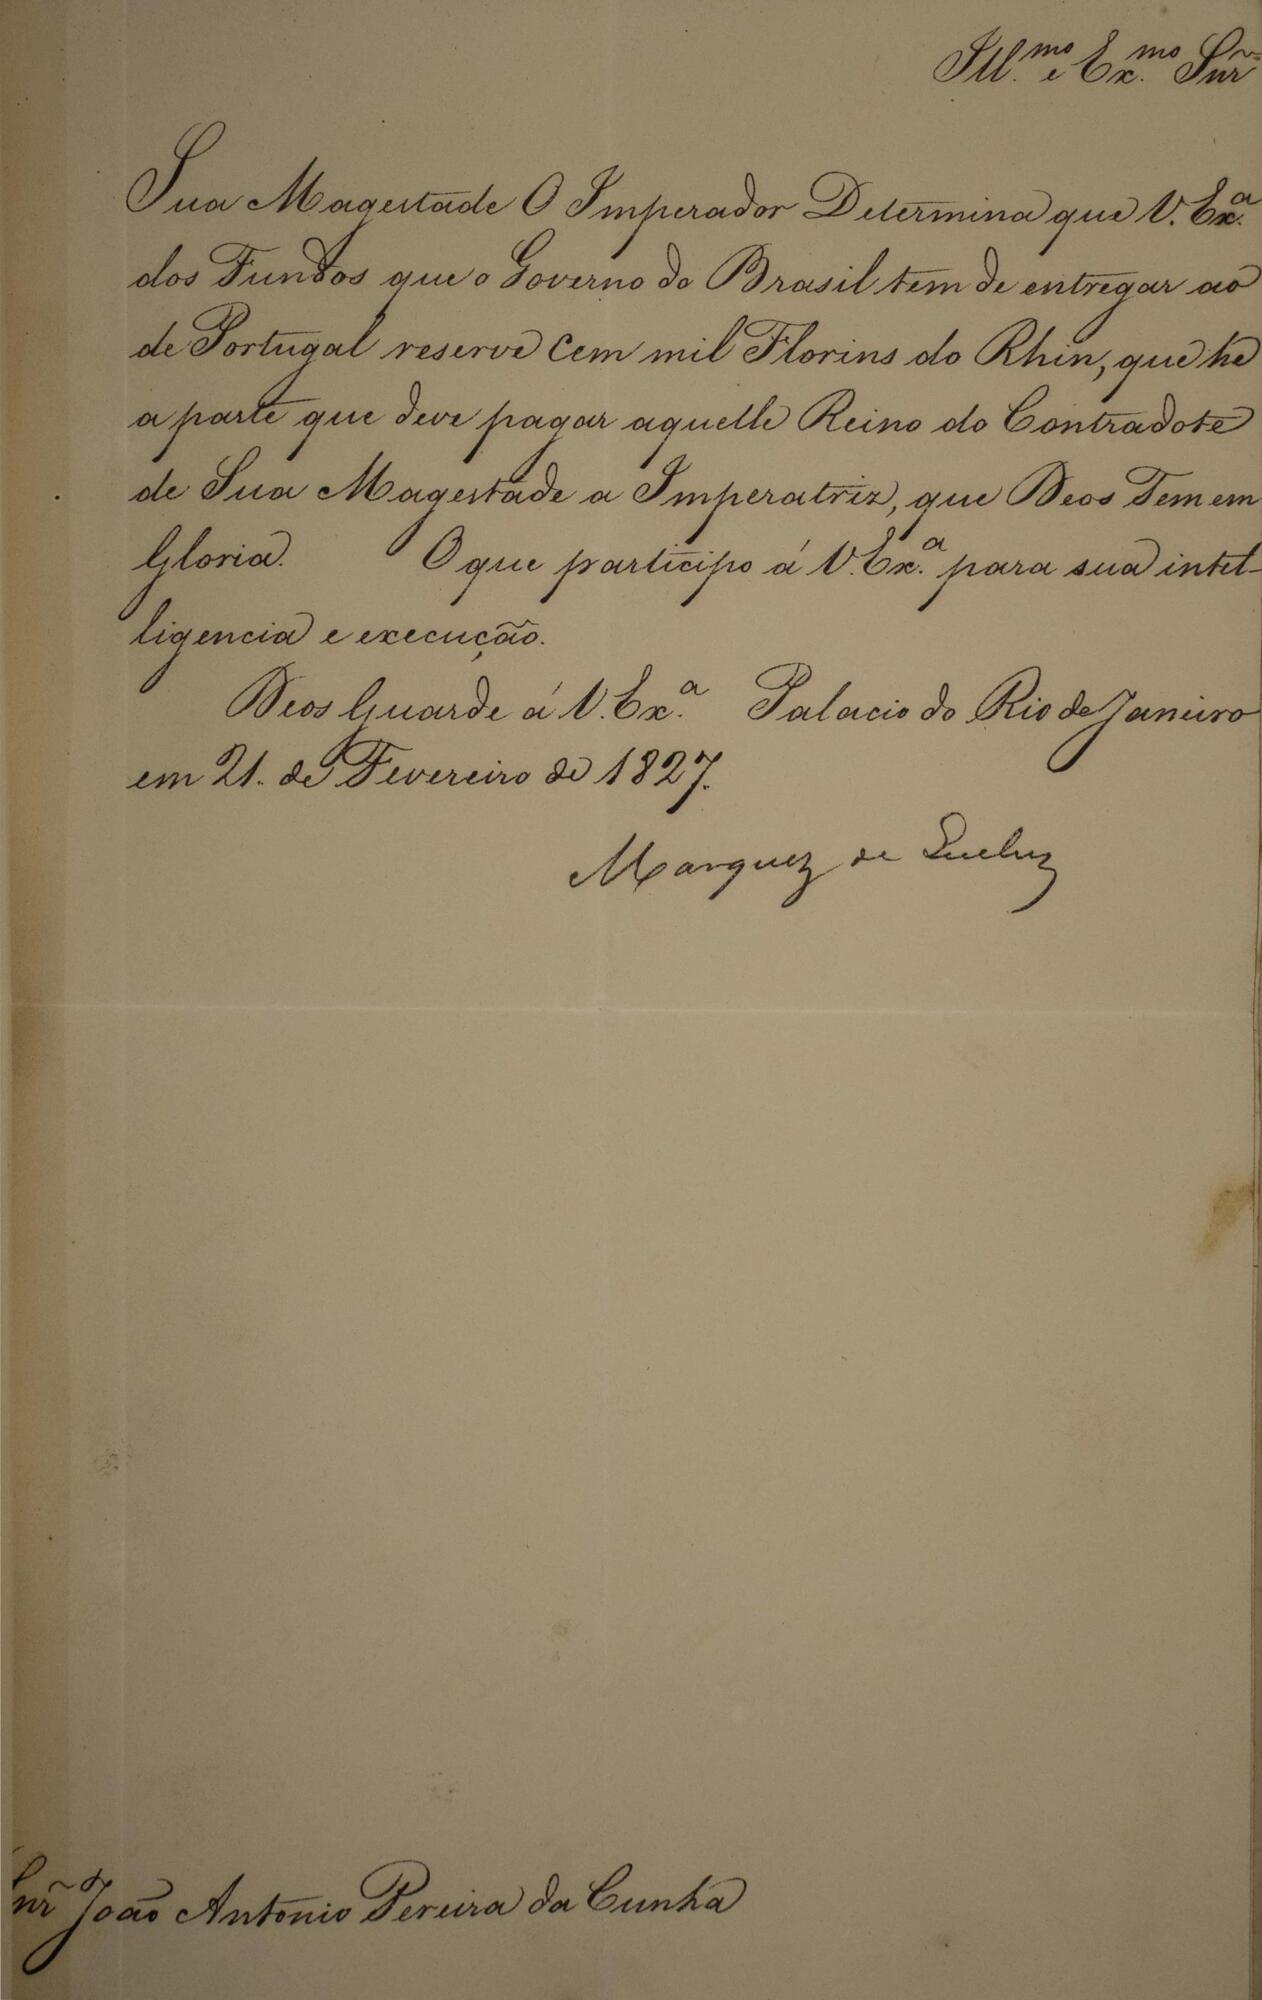 Ill.mo e Ex.mo Snr̃
Sua Magestade O Imperador Determina que V. Ex.a
dos Fundos que o Governo do Brasil tem de entregar ao
de Portugal reserve Cem mil Florins do Rhin, que he
a parte que deve pagar aquelle Reino do Contradote
de Sua Magestade a Imperatriz, que Deos Tem em
Gloria. O que participo á V. Ex.a para sua intel-
ligencia e execução.
Deos Guarde á V. Ex.a Palacio do Rio de Janeiro
em 21. de Fevereiro de 1827.
Marquez de Queluz
Snr̃ João Antonio Pereira da Cunha